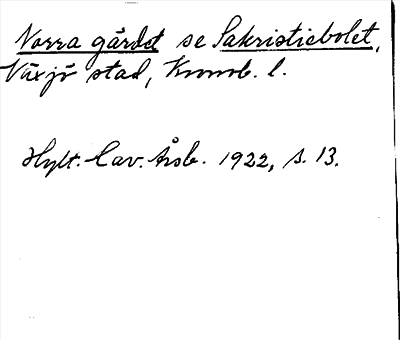 Norra gärdet se Sakristiebolet,
Växjö stad, Kronob. l.
Hylt. Cav. Årsb. 1922, s. 13.